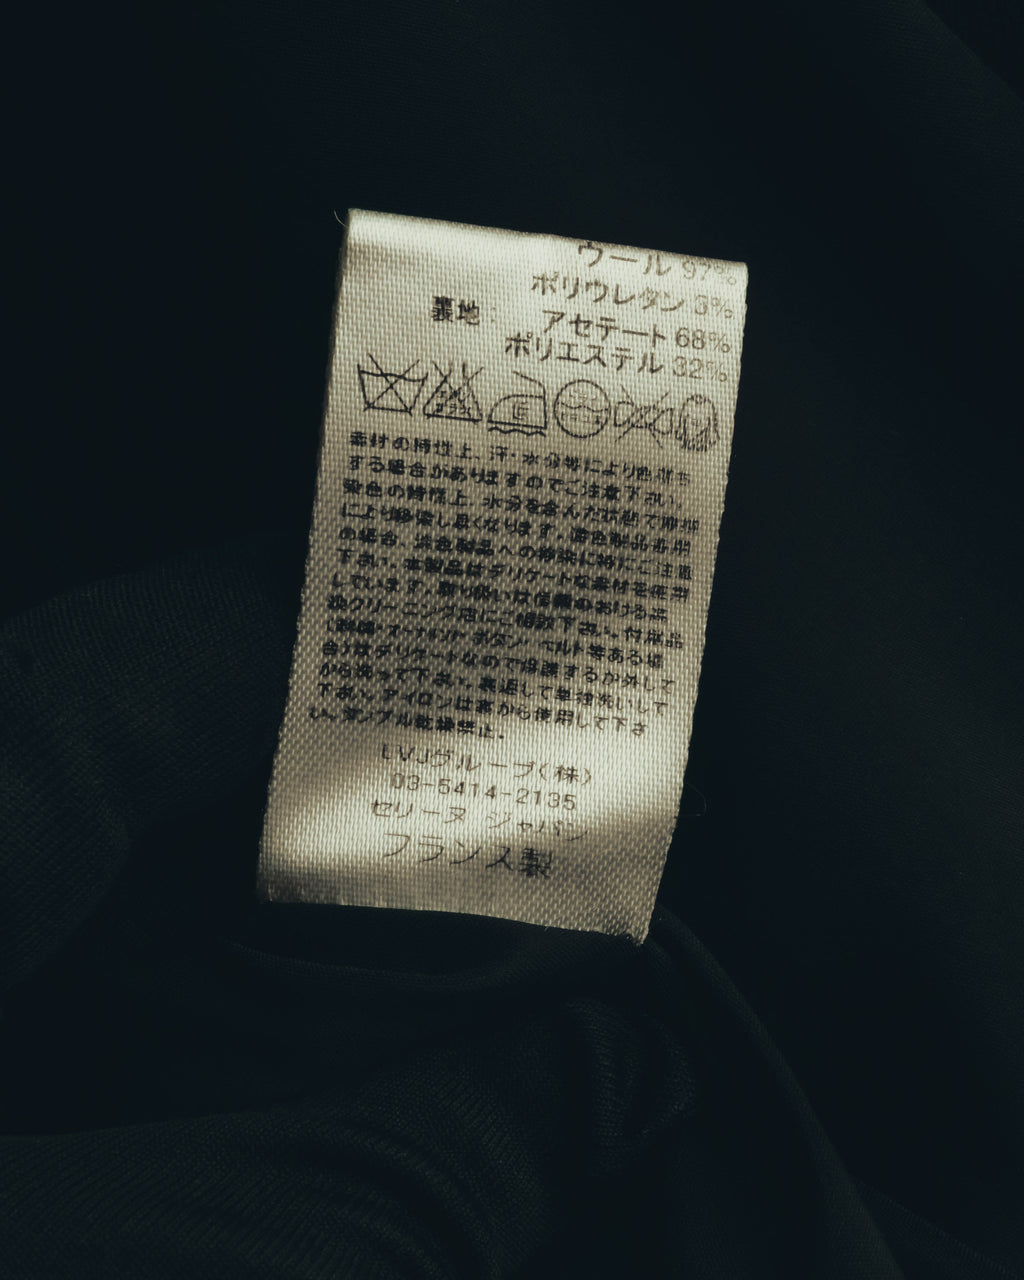 ウール 97%
ポリウレタン 3%
裏地: アセテート 68%
ポリエステル 32%
素材の特性上、汗・水分等により色落ち
する場合がありますのでご注意下さい。
染色の特性上、水分を含んだ状態で摩擦
により移染し易くなります。濃色製品着用
の場合、淡色製品への移染に特にご注意
下さい。本製品はデリケートな素材を使用
しています。取り扱いは信頼のおける品
質クリーニング店にご相談下さい。付属品
ボタン・ベルト等ある場
合)はデリケートなので保護するか外して
から洗って下さい。裏返して単独洗いして
下さい。アイロンは裏から使用して下さ
い。タンブル乾燥禁止。
LVJグループ(株)
03-5414-2135
セリーヌ ジャパン
フランス製